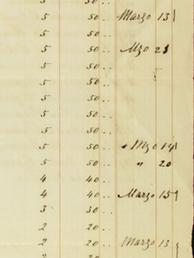 5 50..
5 50.. Marzo 13
5 50..
5 50.. Mzo 21
5 50..
5 50..
5 50..
5 50..
5 50..
5 50.. Mzo 14
5 50.. " 20
4 40
4 40.. Marzo 15
3 30..
2 20
2 20.. Marzo 13
2 20